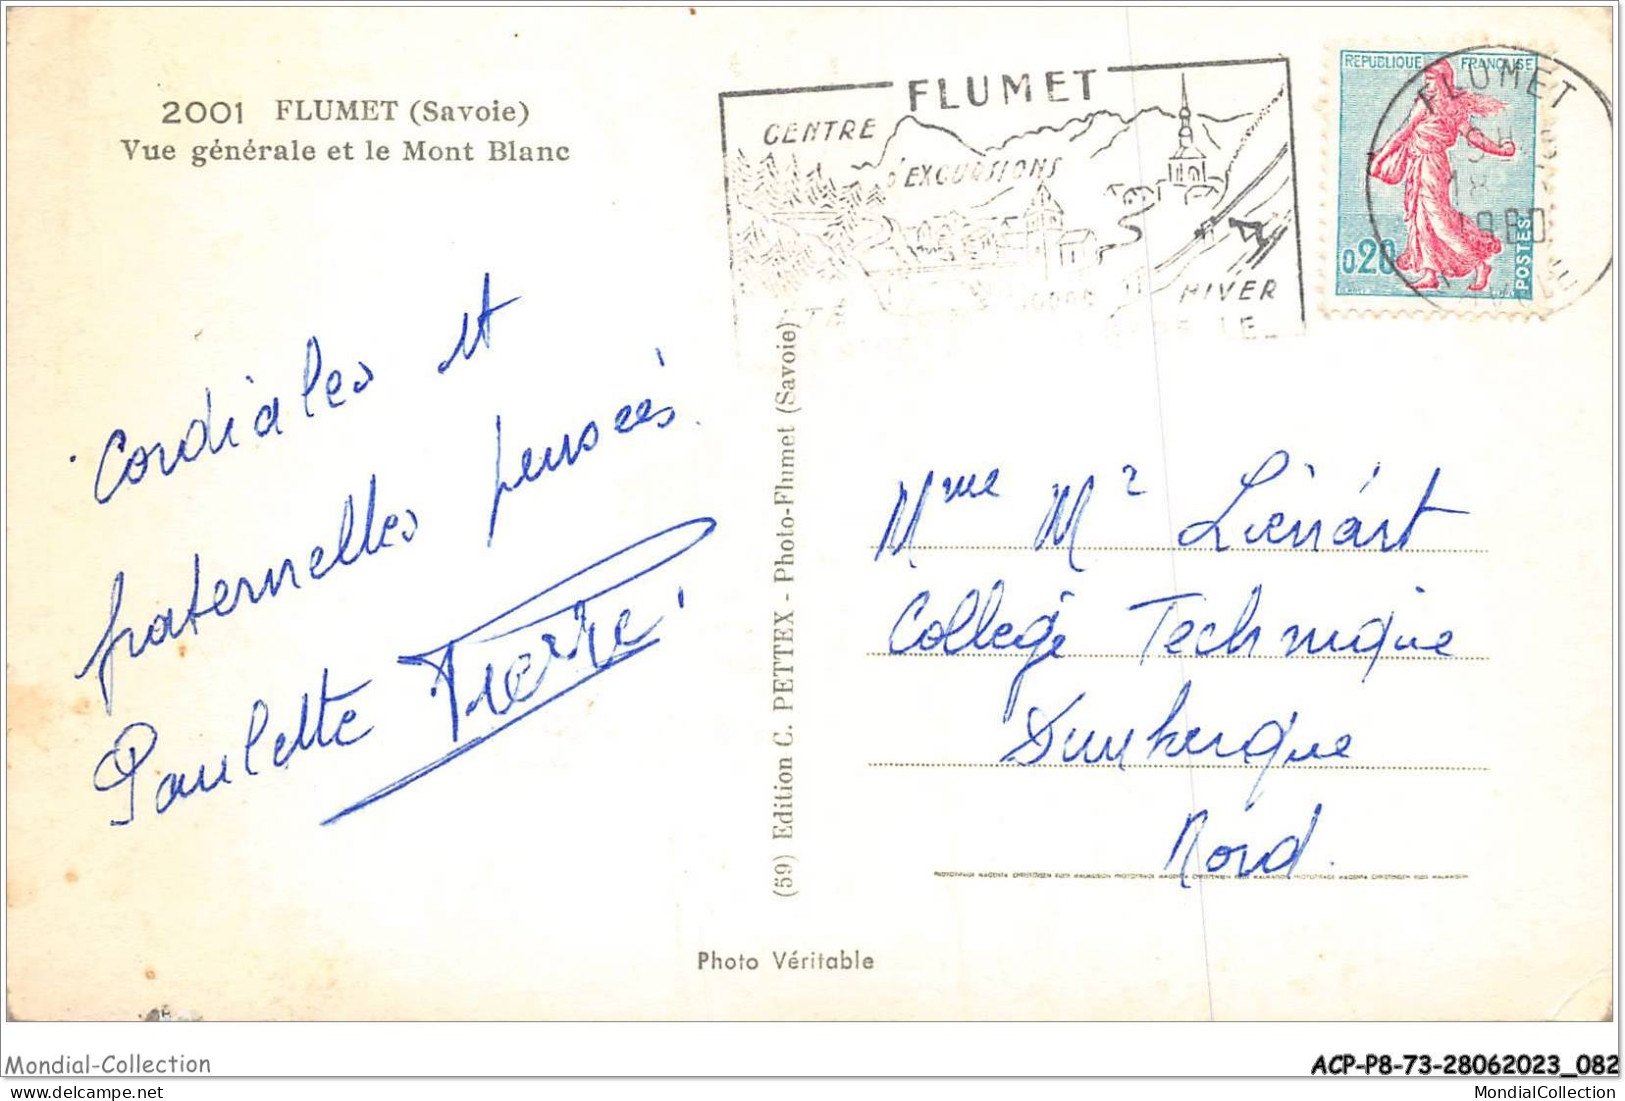 2001 FLUMET (Savoie)
Vue générale et le Mont Blanc
FLUMET
CENTRE
D'EXCURSIONS
HIVER
REPUBLIQUE FRANÇAISE
0.20
POSTES
FLUMET
18
1960
SAVOIE
Cordiales et
fraternelles pensées.
Paulette Pierre
(59) Edition C. PETTEX - Photo-Flumet (Savoie)
Mme M2 Liénart
College Technique
Dunkerque
Nord.
Photo Véritable
Mondial-Collection
ACP-P8-73-28062023_082
MondialCollection